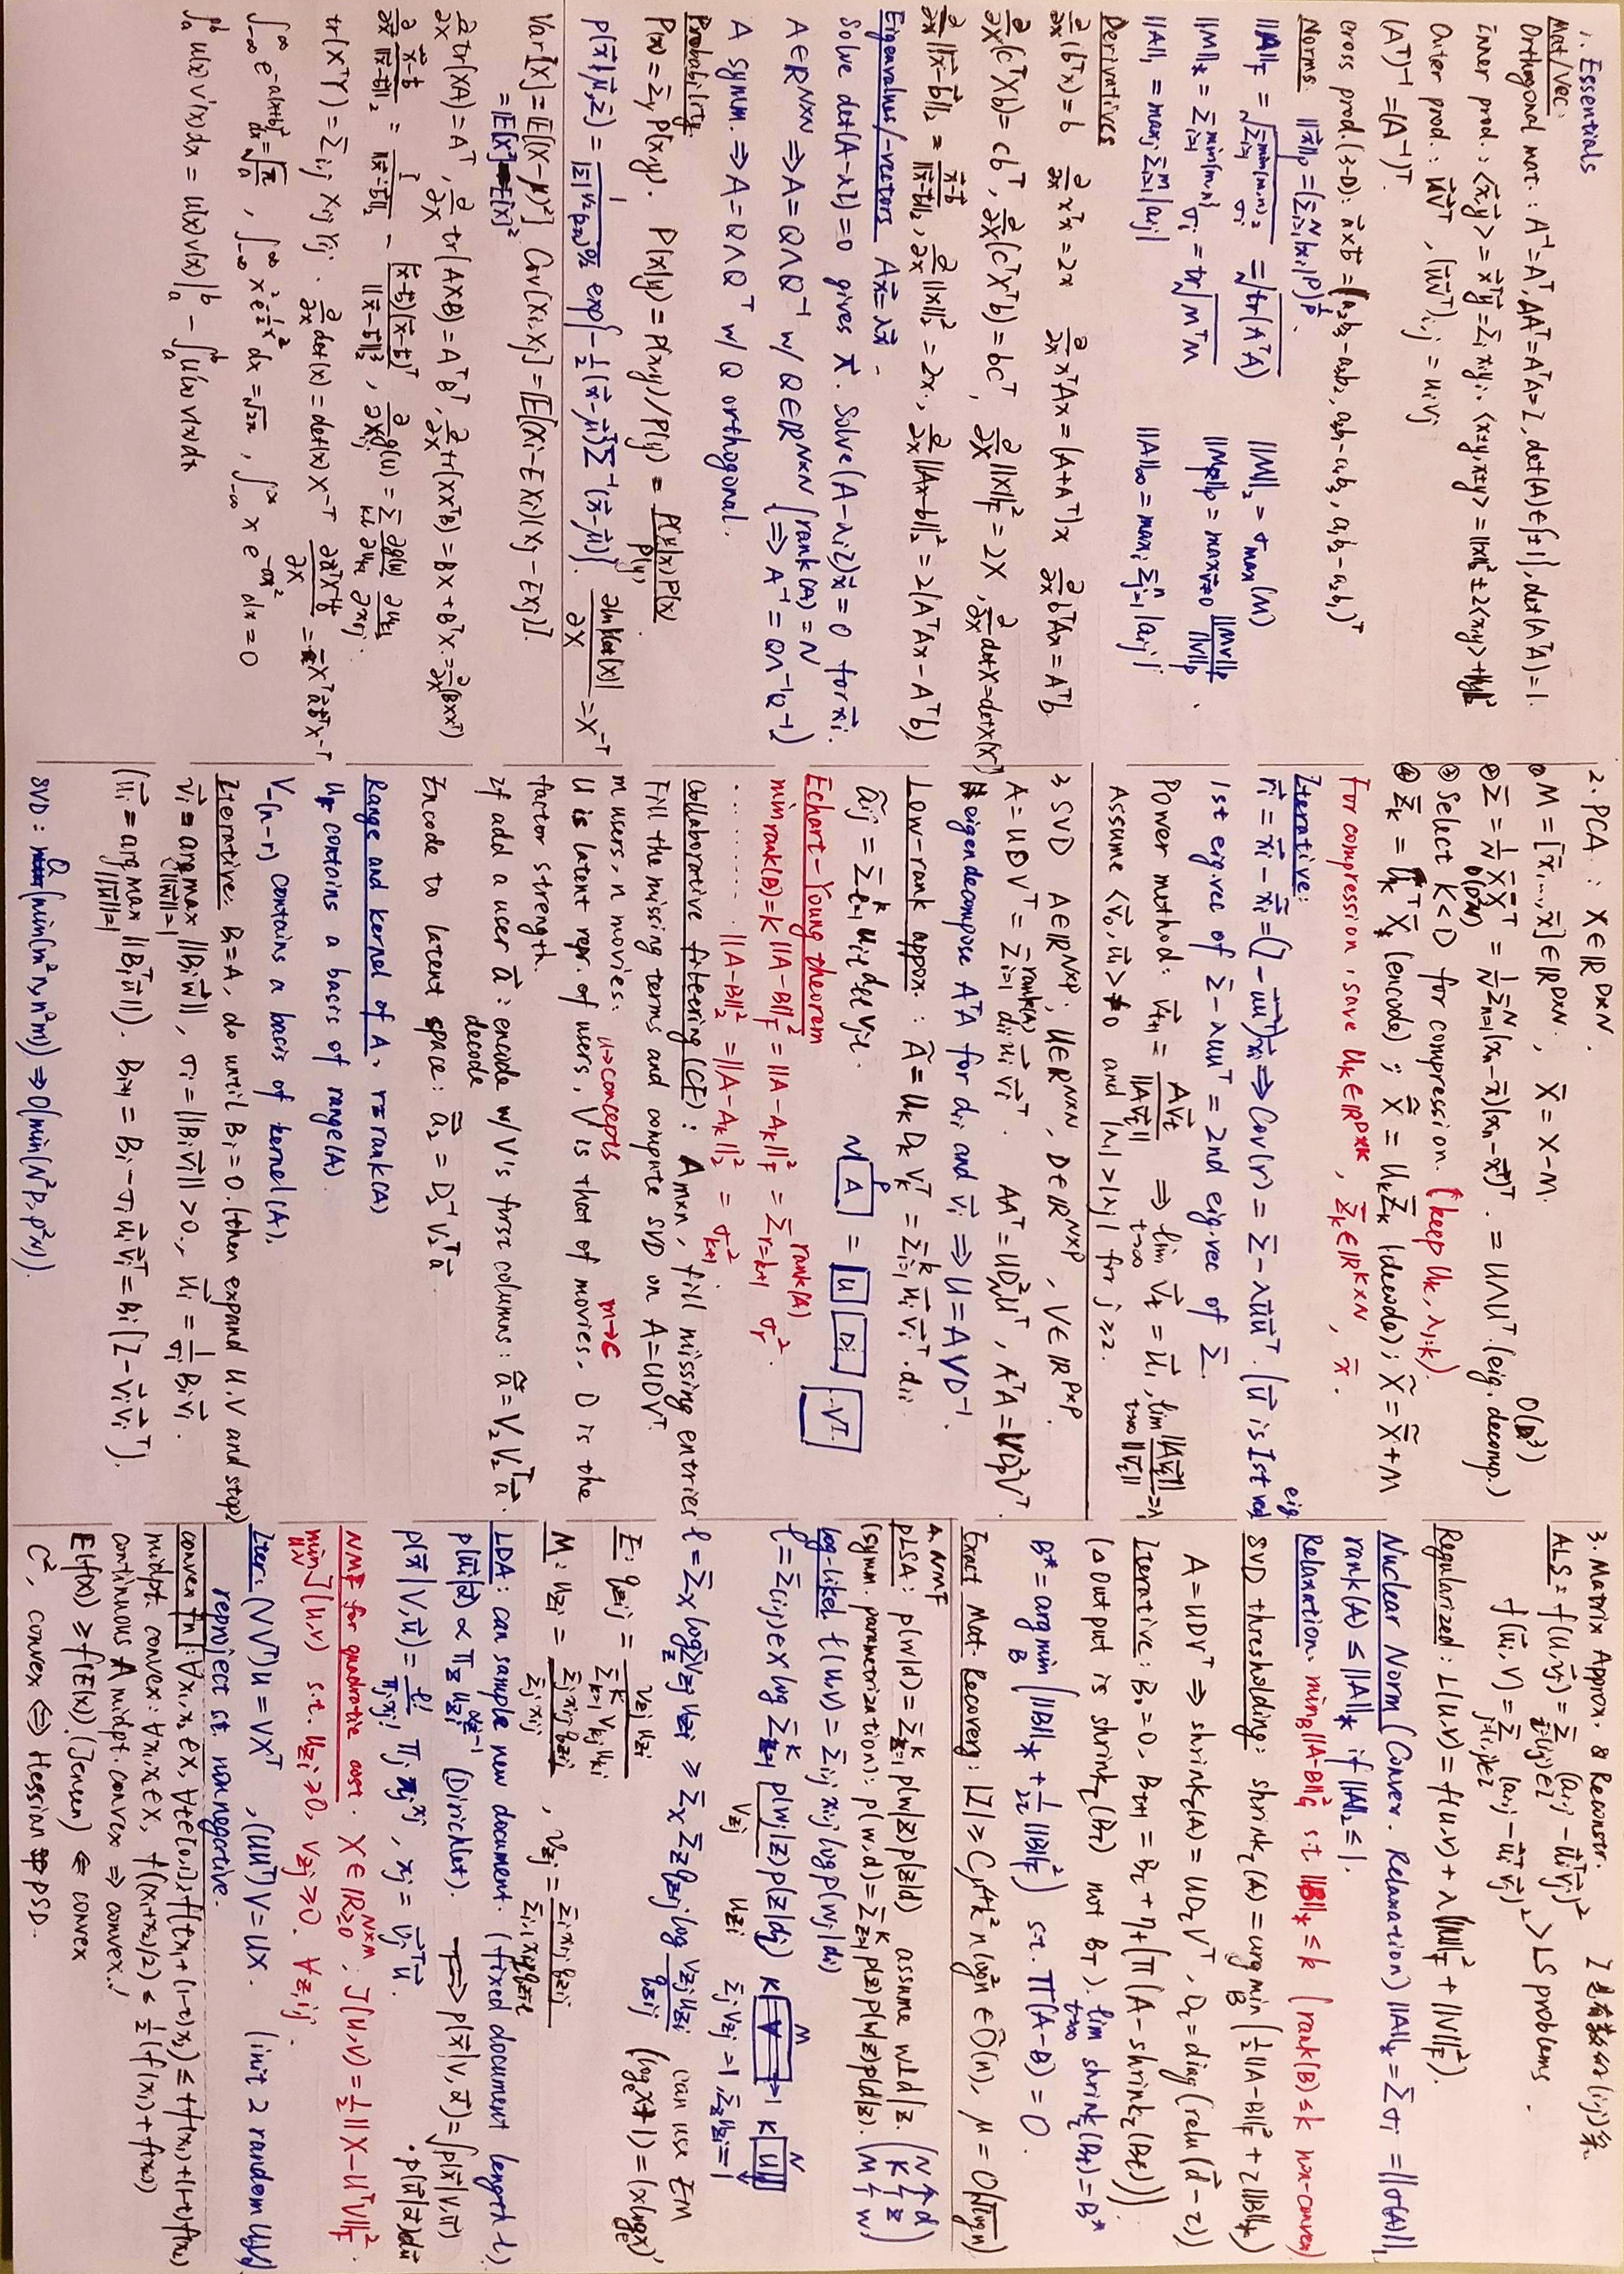 1. Essentials
Mat/Vec:
Orthogonal mat.: A⁻¹=Aᵀ, AAᵀ=AᵀA=I, det(A)∈{±1}, det(AᵀA)=1.
inner prod.: <x⃗,y⃗> = x⃗ᵀy⃗ = Σᵢ xᵢyᵢ. <x±y,x±y> = ||x||²±2<x,y>+||y||²
Outer prod.: u⃗v⃗ᵀ, (u⃗v⃗ᵀ)ᵢ,ⱼ = uᵢvⱼ
(Aᵀ)⁻¹ = (A⁻¹)ᵀ.
cross prod. (3-D): a⃗×b⃗ = (a₂b₃-a₃b₂, a₃b₁-a₁b₃, a₁b₂-a₂b₁)ᵀ
Norms: ||x⃗||ₚ = (Σᵢ₌₁ᴺ|xᵢ|ᵖ)^(1/p).
||A||_F = √(Σᵢ₌₁^min(m,n) σᵢ²) = √tr(AᵀA) ||M||₂ = σmax(M)
||M||_* = Σᵢ₌₁^min(m,n) σᵢ = tr√(MᵀM) ||M||ₚ = max_{v≠0} ||Mv||ₚ/||v||ₚ.
||A||₁ = maxⱼ Σᵢ₌₁ᵐ|aᵢⱼ| ||A||∞ = maxᵢ Σⱼ₌₁ⁿ|aᵢⱼ|
Derivatives
∂/∂x(bᵀx) = b ∂/∂x xᵀx = 2x ∂/∂x xᵀAx = (A+Aᵀ)x ∂/∂x bᵀAx = Aᵀb
∂/∂X(cᵀXb) = cbᵀ, ∂/∂X(cᵀXᵀb) = bcᵀ, ∂/∂X||X||²_F = 2X, ∂/∂X detX = detX(X⁻ᵀ)
∂/∂x||x⃗-b⃗||₂ = (x⃗-b⃗)/||x⃗-b⃗||₂, ∂/∂x||x||₂² = 2x, ∂/∂x||Ax-b||₂² = 2(AᵀAx-Aᵀb)
Eigenvalues/-vectors Ax⃗=λx⃗.
Solve det(A-λI)=0 gives λ. Solve (A-λᵢI)x⃗=0 for x⃗ᵢ.
A∈ℝᴺˣᴺ ⇒ A=QΛQ⁻¹ w/ Q∈ℝᴺˣᴺ (rank(A)=N ⇒ A⁻¹=QΛ⁻¹Q⁻¹)
A symm. ⇒ A=QΛQᵀ w/ Q orthogonal.
Probability:
P(x)=Σ_y P(x,y). P(x|y) = P(x,y)/P(y) = P(y|x)P(x)/P(y)
p(x⃗|μ⃗,Σ) = 1/(|Σ|^(1/2)(2π)^(D/2)) exp{-½(x⃗-μ⃗)ᵀΣ⁻¹(x⃗-μ⃗)}. ∂ln|det(X)|/∂X = X⁻ᵀ
Var[X] = 𝔼[(X-μ)²]. Cov[Xᵢ,Xⱼ] = 𝔼[(Xᵢ-EXᵢ)(Xⱼ-EXⱼ)].
= 𝔼[X²]-E[X]²
∂/∂X tr(XA) = Aᵀ, ∂/∂X tr(AXB) = AᵀBᵀ, ∂/∂X tr(XXᵀB) = BX+BᵀX = ∂/∂X(BXXᵀ)
∂/∂x⃗ (x⃗-b⃗)/||x⃗-b⃗||₂ = I/||x⃗-b⃗||₂ - (x⃗-b⃗)(x⃗-b⃗)ᵀ/||x⃗-b⃗||₂³, ∂/∂Xᵢⱼ g(U) = Σ ∂g(U)/∂uₖₗ ∂uₖₗ/∂xᵢⱼ.
tr(XᵀY) = Σᵢⱼ Xᵢⱼ Yᵢⱼ. ∂/∂X det(X) = det(X)X⁻ᵀ ∂a⃗ᵀX⁻¹b⃗/∂X = -X⁻ᵀa⃗b⃗ᵀX⁻ᵀ
∫₋∞^∞ e^(-a(x+b)²)dx = √(π/a), ∫₋∞^∞ x²e^(-½x²)dx = √2π, ∫₋∞^∞ x e^(-ax²)dx = 0
∫ₐᵇ u(x)v'(x)dx = u(x)v(x)|ₐᵇ - ∫ₐᵇ u'(x)v(x)dx
2. PCA: X∈ℝᴰˣᴺ.
① M=[x̄,...,x̄]∈ℝᴰˣᴺ, X̄ = X-M.
② Σ = 1/N X̄X̄ᵀ = 1/N Σₙ₌₁ᴺ(xₙ-x̄)(xₙ-x̄)ᵀ. = UΛUᵀ (eig. decomp.) O(D³)
O(D²N)
③ Select K<D for compression. (keep Uₖ, λ₁:ₖ).
④ Z̄ₖ = UₖᵀX̄ (encode); X̄̃ = UₖZ̄ₖ (decode); X̃ = X̄̃+M
For compression, save Uₖ∈ℝᴰˣᴷ, Z̄ₖ∈ℝᴷˣᴺ, x̄.
Iterative:
r⃗ᵢ = x⃗ᵢ - x̃ᵢ = (I-u⃗u⃗ᵀ)x⃗ᵢ ⇒ Cov(r) = Σ-λu⃗u⃗ᵀ. (u⃗ is 1st eig. vec)
1st eig.vec of Σ-λuuᵀ = 2nd eig.vec of Σ.
Power method: v⃗ₜ₊₁ = Av⃗ₜ/||Av⃗ₜ|| ⇒ lim_{t→∞} v⃗ₜ = u⃗₁, lim_{t→∞} ||Av⃗ₜ||/||v⃗ₜ|| = λ₁
Assume <v⃗₀,u⃗₁> ≠ 0 and |λ₁|>|λⱼ| for j≥2.
3 SVD A∈ℝᴺˣᴾ, U∈ℝᴺˣᴺ, D∈ℝᴺˣᴾ, V∈ℝᴾˣᴾ.
A=UDVᵀ = Σᵢ₌₁^rank(A) dᵢᵢu⃗ᵢv⃗ᵢᵀ. AAᵀ=UD²_N Uᵀ, AᵀA=VD²_P Vᵀ.
eigendecompose AᵀA for dᵢᵢ and v⃗ᵢ ⇒ U=AVD⁻¹.
Low-rank appox.: Ã = UₖDₖVₖᵀ = Σᵢ₌₁ᵏ u⃗ᵢv⃗ᵢᵀ.dᵢᵢ
ãᵢⱼ = Σₗ₌₁ᵏ uᵢₗdₗₗvⱼₗ. N A P = U D Vᵀ
Echart-Young theorem
min_rank(B)=K ||A-B||²_F = ||A-Aₖ||²_F = Σ_{r=k+1}^rank(A) σᵣ².
........ ||A-B||₂² = ||A-Aₖ||₂² = σ²ₖ₊₁
Collaborative filtering (CF): Aₘₓₙ, fill missing entries
Fill the missing terms and compute SVD on A=UDVᵀ.
m users, n movies: u→concepts m→c
U is latent repr. of users, V is that of movies, D is the
factor strength.
If add a user a⃗: encode w/ V's first columns: ã = V₂V₂ᵀa⃗.
decode
Encode to latent space: a⃗₂ = D₂⁻¹V₂ᵀa⃗
Range and kernel of A, r=rank(A)
Uᵣ contains a basis of range(A).
V_(n-r) contains a basis of kernel(A).
Iterative: B₁=A, do until Bᵢ=0. (then expand U,V and stop)
v⃗ᵢ = argmax_{||w⃗||=1} ||Bᵢw⃗||, σᵢ = ||Bᵢv⃗ᵢ|| >0., u⃗ᵢ = 1/σᵢ Bᵢv⃗ᵢ.
(u⃗ᵢ = argmax_{||u⃗||=1} ||Bᵢᵀu⃗||). Bᵢ₊₁ = Bᵢ-σᵢu⃗ᵢv⃗ᵢᵀ = Bᵢ(I-v⃗ᵢv⃗ᵢᵀ).
SVD: O(min(m²n,n²m)) ⇒ O(min(N²P,P²N)).
3. Matrix Approx. & Reconstr. I 是有数的(i,j)条.
ALS: f(U,v⃗ⱼ) = Σ_{i:(i,j)∈I} (aᵢⱼ-u⃗ᵢᵀv⃗ⱼ)²
f(u⃗ᵢ,V) = Σ_{j:(i,j)∈I} (aᵢⱼ-u⃗ᵢᵀv⃗ⱼ)² > LS problems.
Regularized: L(U,V) = f(U,V)+λ(||U||²_F+||V||²_F).
Nuclear Norm (Convex. Relaxation) ||A||_* = Σσᵢ = ||σ(A)||₁
rank(A) ≤ ||A||_* if ||A||₂ ≤ 1.
Relaxation. min_B||A-B||²_G s.t. ||B||_* ≤ k (rank(B)≤k non-convex)
SVD thresholding: shrink_τ(A) = argmin_B (½||A-B||²_F+τ||B||_*)
A=UDVᵀ ⇒ shrink_τ(A) = UD_τVᵀ, D_τ=diag(relu(d⃗-τ))
Iterative: B₀=0, Bₜ₊₁ = Bₜ+ηₜ(Π(A-shrink_τ(Bₜ)))
(△ output is shrink_τ(B_T) not B_T). lim_{t→∞} shrink_τ(Bₜ)=B*
B* = argmin_B (||B||_*+1/2τ||B||²_F) s.t. Π(A-B)=0.
Exact Mat. Recovery: |I| ≥ Cμ⁴k²n(log²n) ∈ Õ(n), μ=O(√log n)
4. NMF
pLSA: p(w|d) = Σ_{z=1}^K p(w|z)p(z|d) assume w⊥d|z.
(symm. parametrization): p(w,d) = Σ_{z=1}^K p(z)p(w|z)p(d|z).
log-likel ℓ(U,V) = Σᵢⱼ xᵢⱼ log p(wⱼ|dᵢ)
ℓ = Σ_(i,j)∈X log Σ_{z=1}^K p(wⱼ|z)p(z|dᵢ)
v_zj u_zi Σⱼv_zj=1, Σ_z u_zi=1
ℓ = Σ_X log Σ_z v_zj u_zi ≥ Σ_X Σ_z q_zij log v_zj u_zi/q_zij can use EM
E: q_zij = v_zj u_zi / Σₖ₌₁ᴷ vₖⱼuₖᵢ
M: u_zi = Σⱼxᵢⱼq_zij/Σⱼxᵢⱼ, v_zj = Σᵢxᵢⱼq_zij/Σᵢ,ₗxᵢₗq_zil
LDA: can sample new document. (fixed document length ℓ)
p(u⃗|α⃗) ∝ Π_z u_z^(α_z-1) (Dirichlet). ⟹ p(x⃗|V,α⃗) = ∫p(x⃗|V,u⃗)·p(u⃗|α⃗)du⃗
p(x⃗|V,u⃗) = ℓ!/Πⱼxⱼ! Πⱼπⱼ^xⱼ, πⱼ = v⃗ⱼᵀu⃗.
NMF for quadratic cost. X∈ℝ≥0ᴺˣᴹ. J(U,V) = ½||X-UᵀV||²_F.
min J(U,V) s.t. u_zi≥0, v_zj≥0. ∀z,i,j.
Iter: (VVᵀ)U=VXᵀ, (UUᵀ)V=UX. (init 2 random U,V)
reproject st. nonnegative.
convex fn: ∀x₁,x₂∈X, ∀t∈[0,1], f(tx₁+(1-t)x₂) ≤ tf(x₁)+(1-t)f(x₂)
midpt. convex: ∀x₁,x₂∈X, f((x₁+x₂)/2) ≤ ½(f(x₁)+f(x₂))
continuous ∧ midpt. convex ⇒ convex.
E(f(x)) ≥ f(E(x)). (Jensen) ⇐ convex
C², convex ⇔ Hessian PSD.